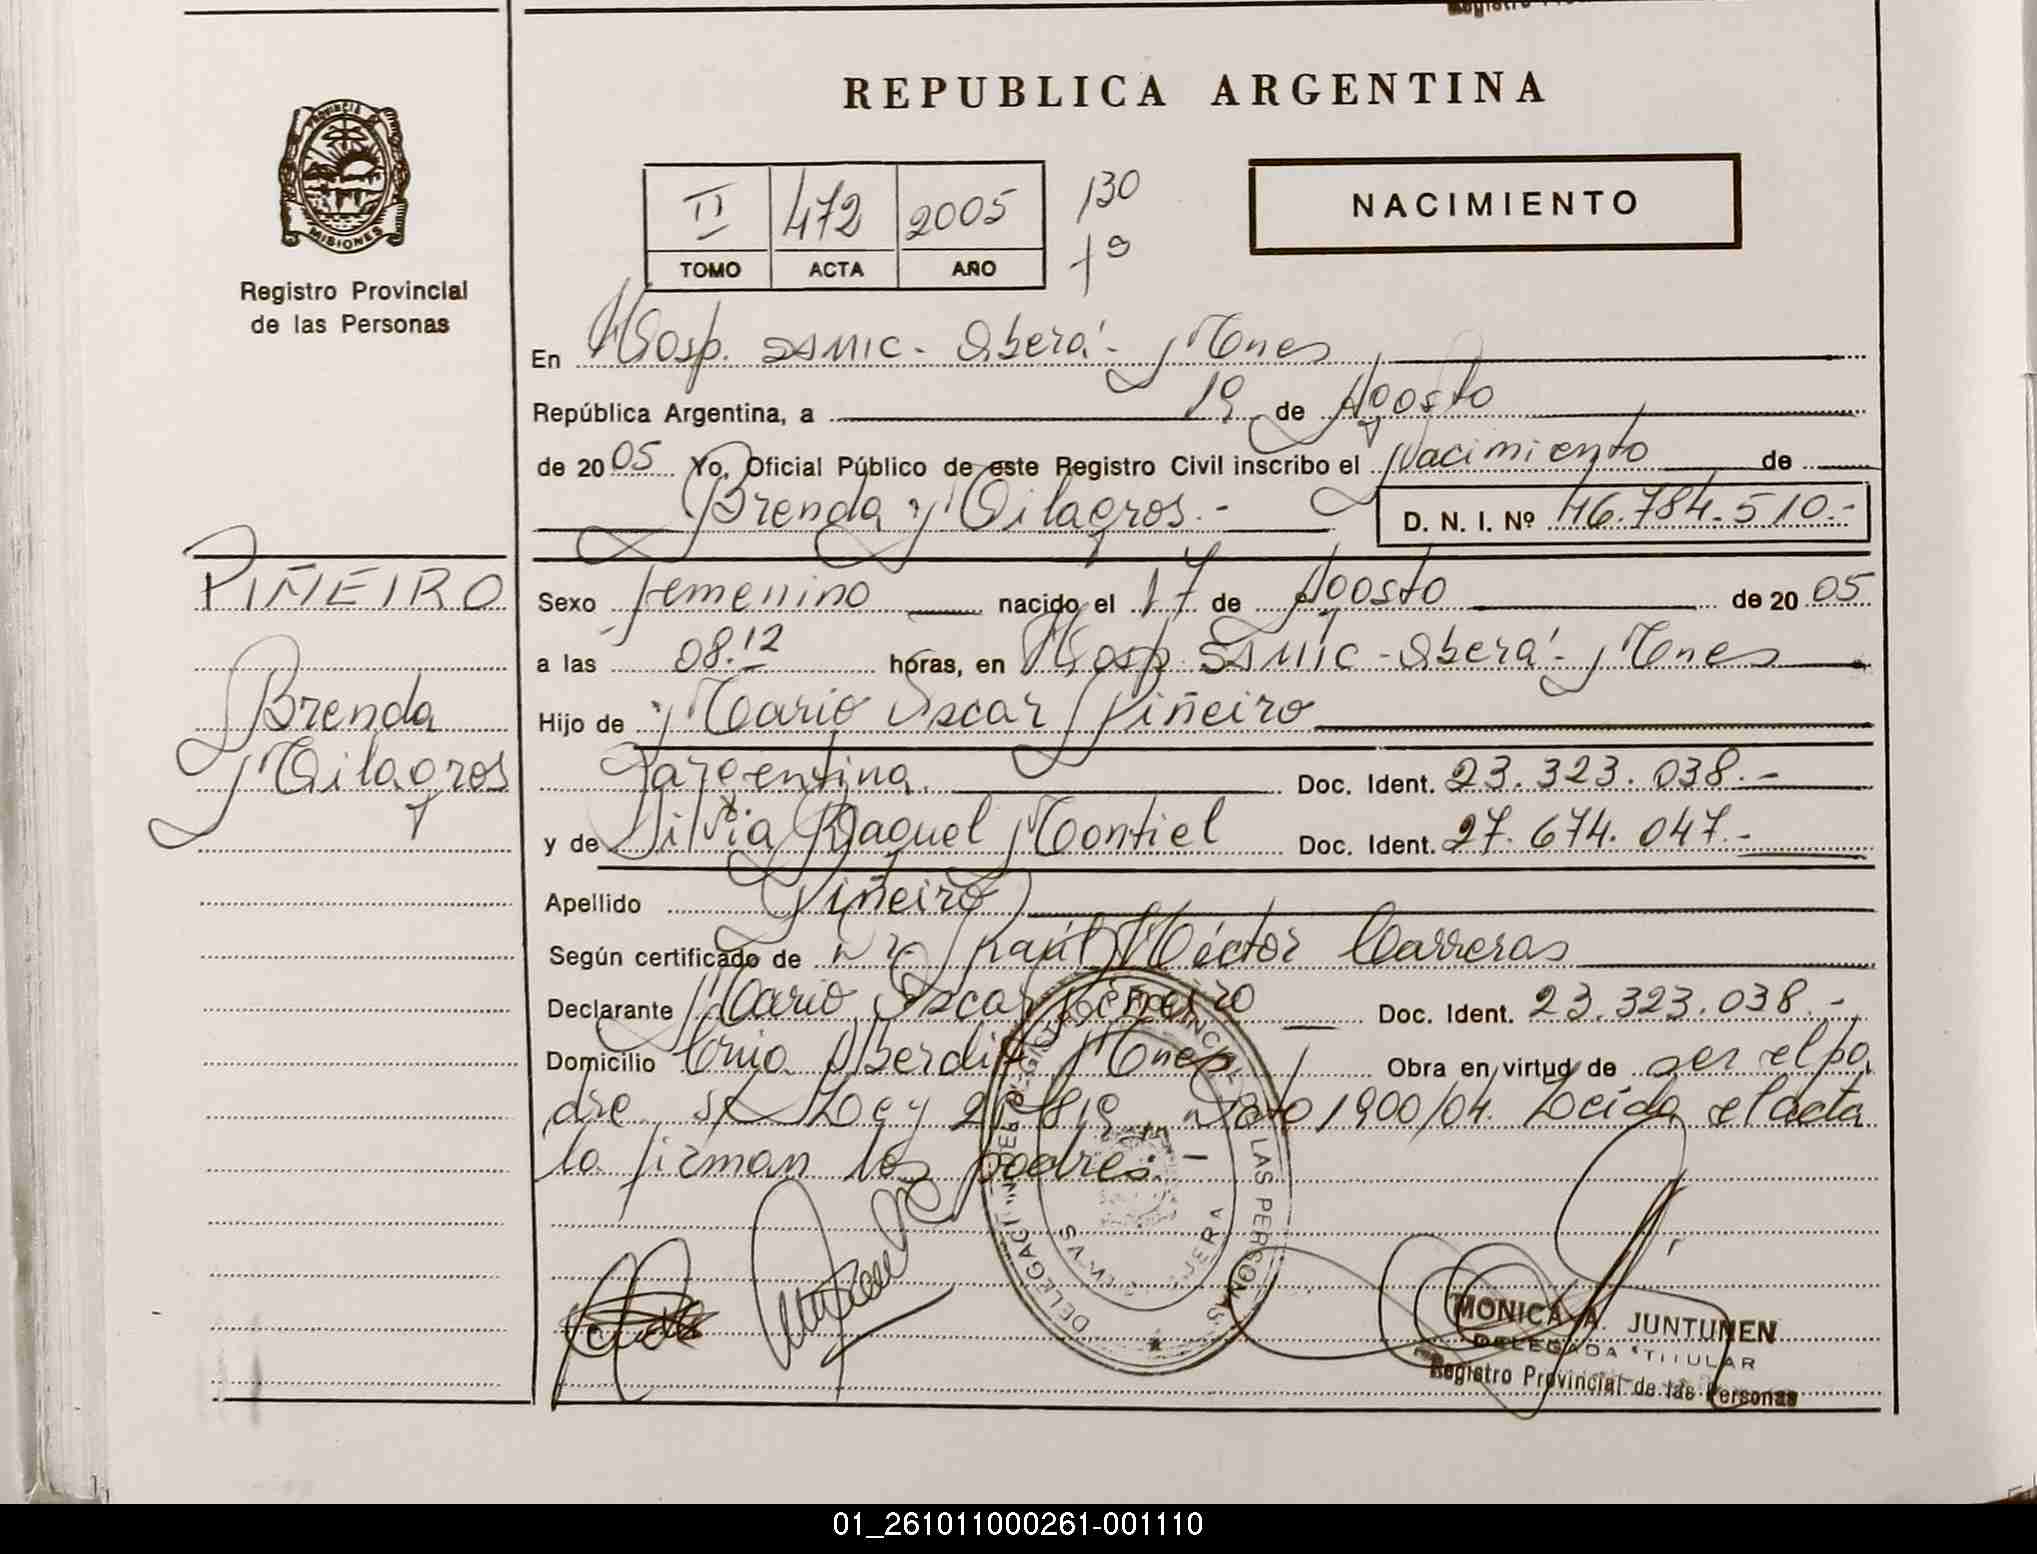 REPUBLICA ARGENTINA
PROVINCIA
MISIONES
Registro Provincial
de las Personas
II 472 2005 130
TOMO ACTA AÑO 1º
NACIMIENTO
En Hosp. SAMIC - Oberá - Mnes
República Argentina, a 19 de Agosto
de 2005 Yo, Oficial Público de este Registro Civil inscribo el Nacimiento de
Brenda Milagros.-
D. N. I. Nº 46.784.510.-
PIÑEIRO
Brenda
Milagros
Sexo femenino nacido el 17 de Agosto de 2005
a las 08.12 horas, en Hosp. SAMIC - Oberá - Mnes
Hijo de Mario Oscar Piñeiro
argentina. Doc. Ident. 23.323.038.-
y de Silvia Raquel Montiel Doc. Ident. 27.674.047.-
Apellido Piñeiro
Según certificado de Dr. Raúl Héctor Carreras
Declarante Mario Oscar Piñeiro Doc. Ident. 23.323.038.-
Domicilio Cnia. Alberdi Mnes Obra en virtud de ser el pa
dre. Ley Dcto 1900/04. Leída el acta
la firman los padres.-
DE LAS PERSONAS
MONICA A. JUNTUNEN
DELEGADA TITULAR
Registro Provincial de las Personas
01_261011000261-001110